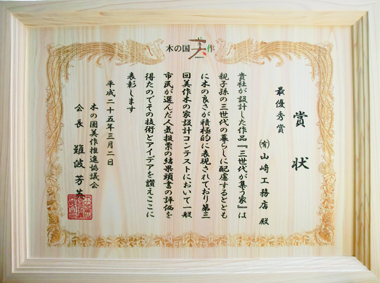 木の国美作
賞状
最優秀賞
㈲山崎工務店 殿
貴社が設計した作品『三世代が集う家』は
親子孫の三世代の暮らしに配慮するととも
に木の良さが積極的に表現されており第三
回美作木の家設計コンテストにおいて一般
市民が選んだ人気投票の結果頭書の評価を
得たのでその技術とアイデアを讃えここに
表彰します
平成二十五年三月二日
木の国美作推進協議会
会長 難波芳英